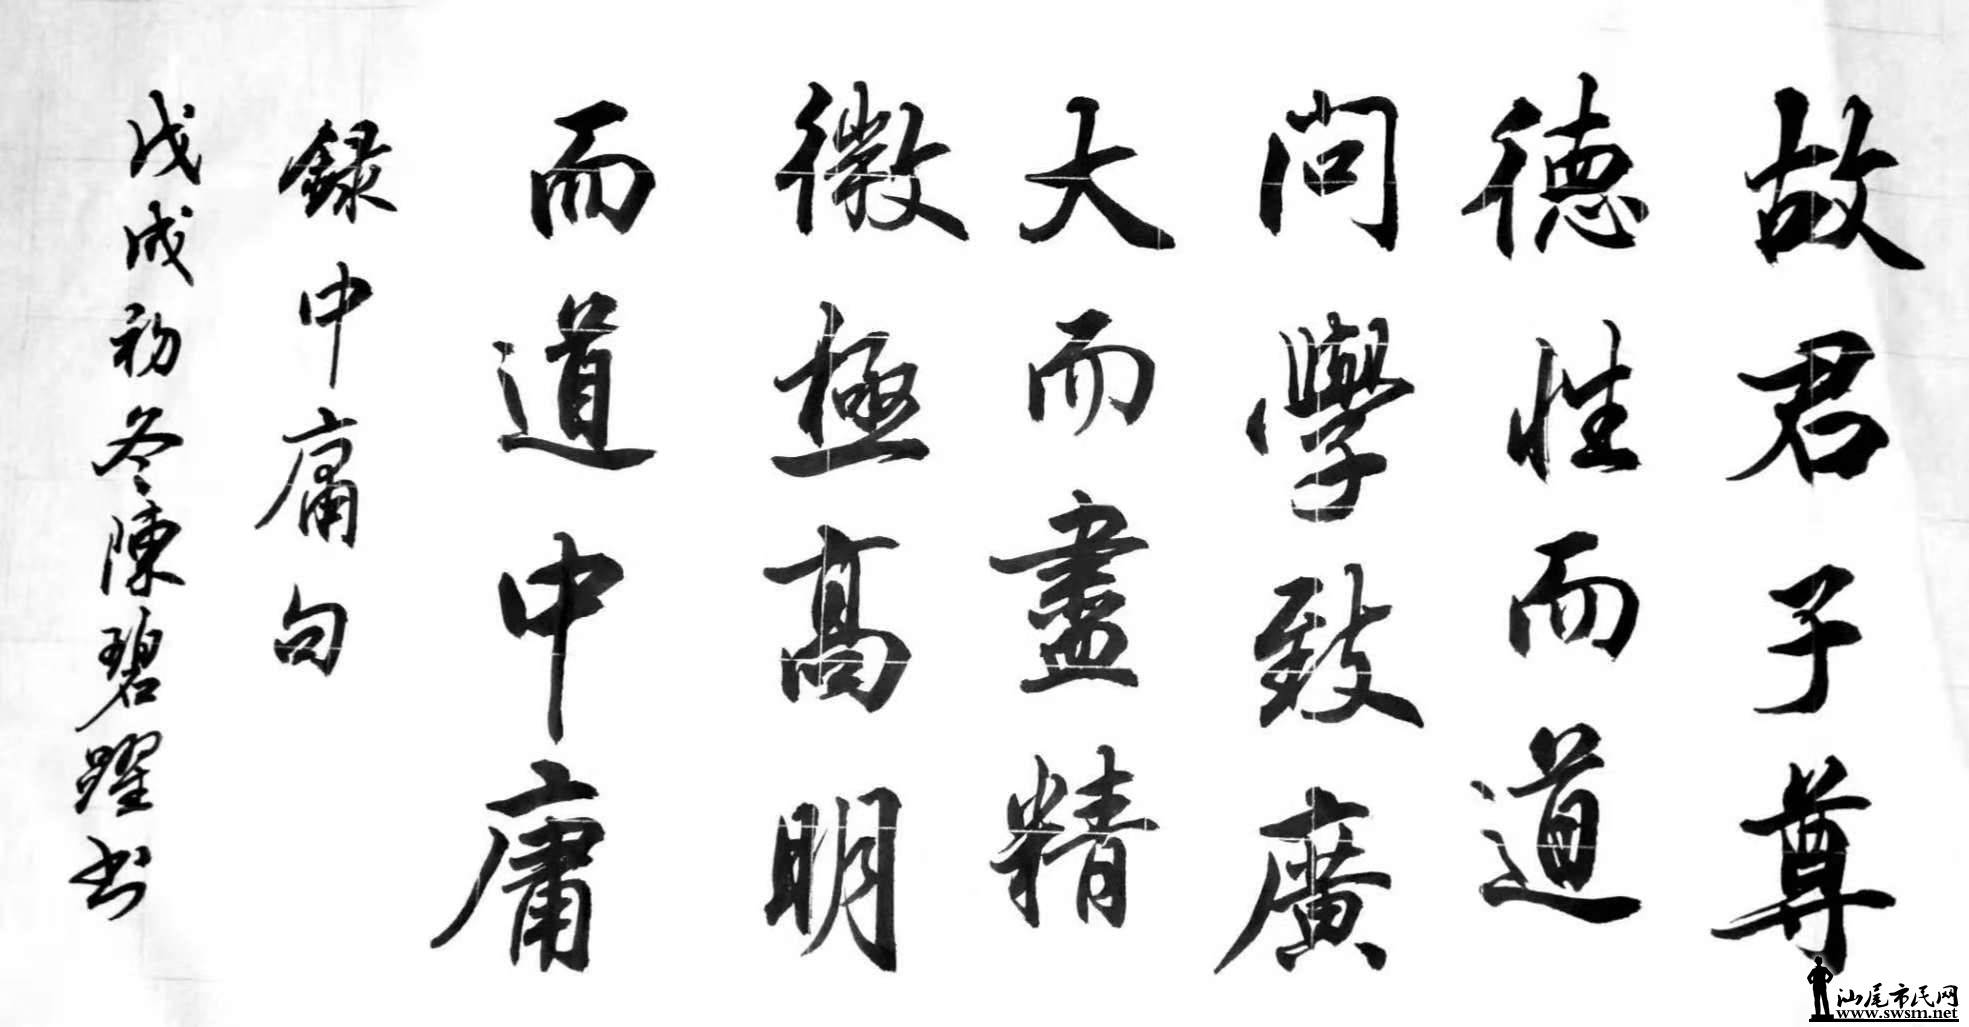 故君子尊
德性而道
问學致廣
大而盡精
微極高明
而道中庸
録中庸句
戊戌初冬陳碧躍书
汕尾市民网
www.swsm.net